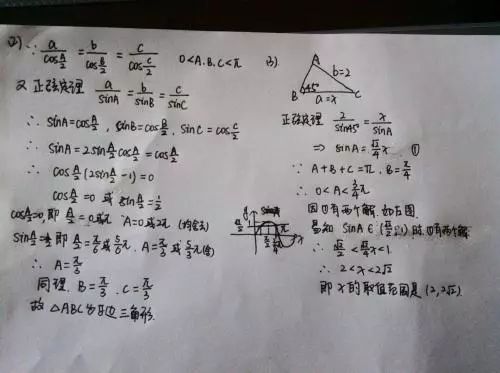 2) ∵ a/cos(A/2) = b/cos(B/2) = c/cos(C/2)  0<A.B.C<π
又 正弦定理 a/sinA = b/sinB = c/sinC
∴ sinA=cos(A/2) , sinB=cos(B/2) , sinC=cos(C/2)
∴ sinA=2sin(A/2)cos(A/2)=cos(A/2)
∴ cos(A/2)(2sin(A/2)-1)=0
cos(A/2)=0 或 sin(A/2)=1/2
cos(A/2)=0, 即 A/2=0或π A=0或2π (均舍去)
sin(A/2)=1/2 即 A/2=π/6或5/6π. A=π/3 或 5/3π(舍)
∴ A=π/3
同理. B=π/3 . C=π/3
故 △ABC为等边三角形.
3).
A
b=2
B 45° a=x C
正弦定理 2/sin45°=x/sinA
⇒ sinA=√2/4x ①
∵ A+B+C=π. B=π/4
∴ 0<A<3/4π
因为有两个解. 如左图.
易知 sinA∈(√2/2,1)时.有两个解
∴ √2/2<√2/4x<1
∴ 2<x<2√2
即 x的取值范围是(2,2√2).
y
sinA
√2/2
π
x